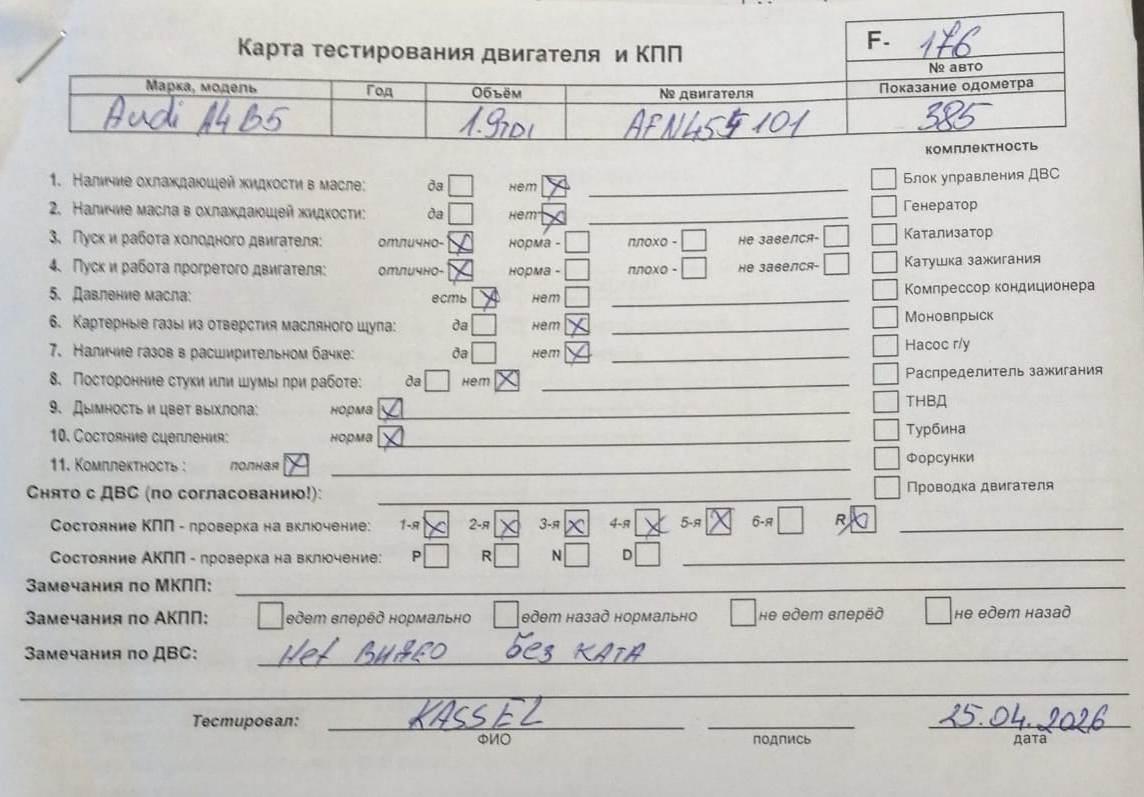 Карта тестирования двигателя и КПП
F- 176
№ авто
Марка, модель Год Объём № двигателя Показание одометра
Audi A4 B5 1.9TDI AFN455101 385
комплектность
1. Наличие охлаждающей жидкости в масле: да нет
Блок управления ДВС
2. Наличие масла в охлаждающей жидкости: да нет
Генератор
3. Пуск и работа холодного двигателя: отлично- норма - плохо - не завелся-
Катализатор
4. Пуск и работа прогретого двигателя: отлично- норма - плохо - не завелся-
Катушка зажигания
5. Давление масла: есть нет
Компрессор кондиционера
6. Картерные газы из отверстия масляного щупа: да нет
Моновпрыск
7. Наличие газов в расширительном бачке: да нет
Насос г/у
8. Посторонние стуки или шумы при работе: да нет
Распределитель зажигания
9. Дымность и цвет выхлопа: норма
ТНВД
10. Состояние сцепления: норма
Турбина
11. Комплектность : полная
Форсунки
Снято с ДВС (по согласованию!):
Проводка двигателя
Состояние КПП - проверка на включение: 1-я 2-я 3-я 4-я 5-я 6-я R
Состояние АКПП - проверка на включение: P R N D
Замечания по МКПП:
Замечания по АКПП: едет вперёд нормально едет назад нормально не едет вперёд не едет назад
Замечания по ДВС: Нет ВИДЕО Без КАТА
Тестировал: KASSEL 25.04.2026
ФИО подпись дата